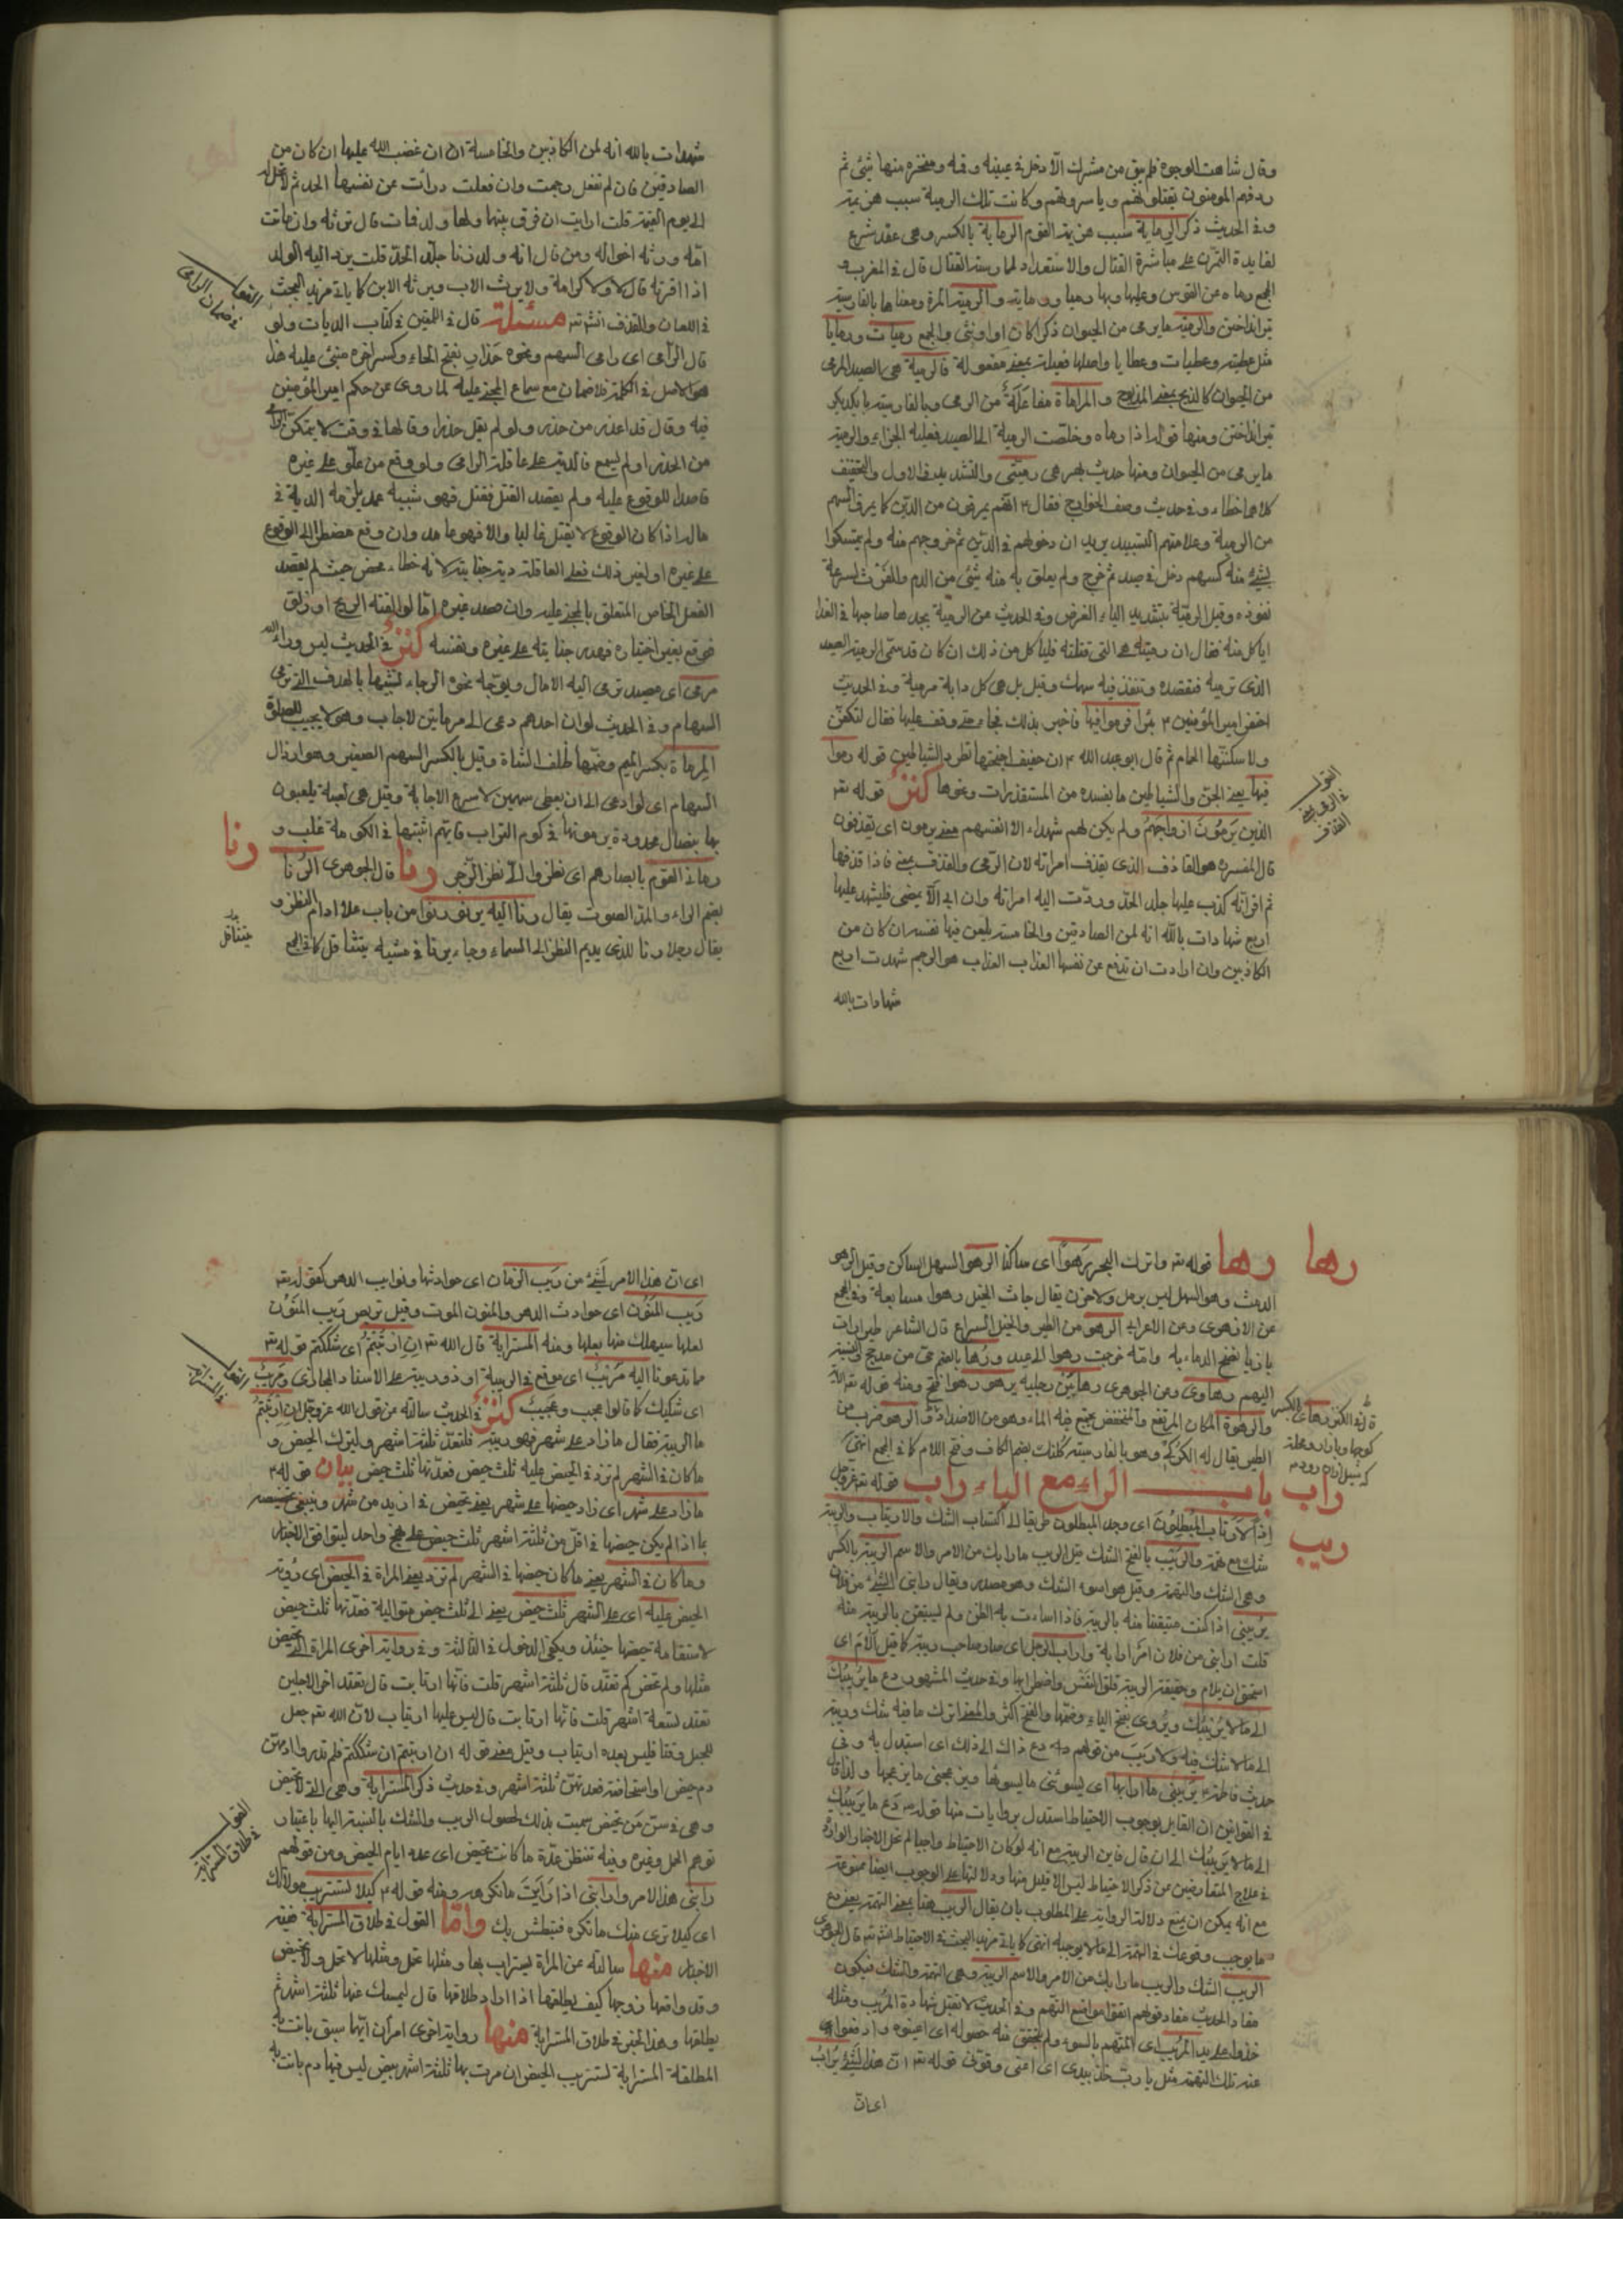 وقال شاهت الوجوه فلم يبق من مشرك الّا دخل في عينيه وفمه ومنخره منها شيئ ثم
ردفهم المومنون يقتلونهم وياسرونهم وكانت تلك الرمية سبب هزيمتهم
وفي الحديث ذكر الرماية الرماية بالكسر وهي عقد شرع
لفايدة التمرّن على مباشرة القتال والاستعداد لممارسة القتال قال في المغرب و
المجمع رماه عن القوس وعليها وبها رميا ورماية والرمية المرة ومعناها بالفارسية
تير انداختن والرمية ما يرمى من الحيوان ذكرا كان او انثى والجمع رميات ورمايا
مثل عطية وعطيات وعطايا واصلها فعيلة بمعنى مفعولة فالرمية هي الصيد المرمي
من الحيوان كالذبيح بمعنى المذبوح والمراماة مفاعَلَة من الرمي وبالفارسية با يكديكر
تير انداختن ومنها قوله اذا رماه وخلّصت الرمية الى الصيد فعليه الجزاء والرمية
ما يرمى من الحيوان ومنها حديث والتشديد في الاول والتخفيف
كلاهما خطاء وفي حديث وصف الخوارج فقال ع انهم يمرقون من الدّين كما يمرق السهم
من الرمية وعلامتهم التسبيد يريد ان دخولهم في الدين ثم خروجهم منه ولم يتمسكوا
بشئ منه كسهم دخل في صيد ثم خرج ولم يعلق به منه شئ من الدم والفرث لسرعة
نفوذه وقيل الرميّة بتشديد الياء الغرض وفي الحديث عن الرمية يجدها صاحبها في الغد
اياكل منه فقال ان رميته هي التي قتلته فلياكل من ذلك ان كان قد سمّى الرمية الصيد
الذي ترميه فتقصده وتنفذ فيه سهمك وقيل بل هي كل دابة مرمية وفي الحديث
احتفر امير المؤمنين ع بئرا فرموا فيها فاخبر بذلك فجاء حتى وقف عليها فقال لتكفنّ
ولاسكننّها الحمام ثم قال ابو عبد الله ع ان حفيف اجنحتها تطرد الشياطين قوله رموا
فيها يعني الجن والشياطين ما يفسده من المستقذرات ونحوها كنز قوله تع
الذين يَرمُونَ ازواجَهُم ولم يكن لهم شهداء الا انفسهم معنى يرمون اى يقذفون
قال المفسر هو القاذف الذي يقذف امراته لان الرمى والقذف بمعنى فاذا قذفها
ثم اقر انه كذب عليها جلد الحدّ وردّت اليه امراته وان ابى الّا يمضى فليشهد عليها
اربع شهادات بالله انه لمن الصادقين والخامسة يلعن فيها نفسه ان كان من
الكاذبين وان ارادت ان تدفع عن نفسها العذاب العذاب هو الرجم شهدت اربع
شهادات بالله
القول
في
القذف
شهادات بالله انه لمن الكاذبين والخامسة ان غضب الله عليها ان كان من
الصادقين فان لم تفعل رجمت وان فعلت درأت عن نفسها الحد ثم لا تحل له
الى يوم القيمة قلت ارايت ان فرق بينهما ولها ولد فمات قال ترثه امه وان ماتت
امّه ورثه اخواله ومن قال انه ولد زنا جلد الحدّ قلت يرد اليه الولد
اذا اقر به قال لا ولا كرامة ولا يرث الاب ويرثه الابن كما ياتي مزيد البحث
في اللعان والقذف انش تع مسئلة قال في في كتاب الديات ولو
قال الرامى اى رامى السهم ونحوه حذارِ بفتح الحاء وكسر اخره مبنى عليه هذا
هو الاصل في الكلمة فلا ضمان مع سماع المجنى عليه لما روى عن حكم امير المؤمنين
فيه وقال قد اعذر من حذر ولو لم يقل حذرا وقالها في وقت لا يتمكن المرمى
من الحذر او لم يسمع فالدية على عاقلة الرامى ولو وقع من علو على غيره
قاصدا للوقوع عليه ولم يقصد القتل فقتل فهو شبيه عمد يلزمه الدية في
ماله اذا كان الوقوع لا يقتل غالبا والا فهو عامد وان وقع مضطرا الى الوقوع
على غيره او لغير ذلك فعلى العاقلة دية جنايته لانه خطاء محض حيث لم يقصد
الفعل الخاص المتعلق بالمجنى عليه وان قصد غيره امّا لو القته الريح او زلق
فوقع بغير اختياره فهدر جنايته على غيره ونفسه كنز في الحديث ليس وراء الله
مرمى اى مقصد ترمى اليه الامال ويوجّه نحوه الرجاء تشبيها بالهدف التي ترمى
السهام وفي الحديث لو ان احدهم دعى الى مرماتين لاجاب وهو لا يجيب للصلوة
المِرماة بكسر الميم وضمّها ظلف الشاة وقيل بالكسر السهم الصغير وهو ارذال
السهام اى لو ادعى الى ان يعطى سهمين لاسرع الاجابة وقيل هي لعبة يلعبون
بها بنصال محدودة يرمونها في كوم التراب فايّهم اثبتها في الكومة غلب و
رما في القوم بابصارهم اى نظروا الىّ نظر الزجر رنا قال الجوهرى الرُنا
بضم الراء والمد الصوت يقال رنا اليه يرنو رنوا من باب علا ادام النظر و
يقال رجلا رنا للذي يديم النظر الى السماء وجاء يرنا في مشيه يتثاقل كما في المجمع
القول
في ضمان الرامى
رنا
يتثاقل
رها رها قوله تع واترك البحر رَهواً اى ساكنا الرهو السهل الساكن وقيل الرهو
الدمث وهو السهل ليس برمل ولا حزن يقال جاءت الخيل رهوا متتابعة وفي المجمع
عن الازهرى وعن الاعرابى الرهو من الطير والخيل السراع قال الشاعر
اليهم رهاوى وعن الجوهرى رها بين رجليه يرهو رهوا فتح ومنه قوله تع
والرهوة المكان المرتفع والمنخفض يجتمع فيه الماء وهو من الاضداد والرهو ضرب من
الطير يقال له الكركى وهو بالفارسية كلنك بضم الكاف وفتح اللام كما في المجمع انتهى
باب الراء مع الياء راب قوله عز وجل
إِذاً لَارتابَ المُبطِلُونَ اى وجد المبطلون طريقا الى اكتساب الشك والارتياب والريبة
شك مع تهمة والرَيب بالفتح الشك قيل الريب ما رابك من الامر والاسم الريبة بالكسر
وهي الشك والتهمة وقيل هو اسوء الشك وهو مصدر ويقال رابنى الشئ من فلان
يريبنى اذا كنت متيقنا منه بالريبة فاذا اساءت به الظن ولم تستيقن بالريبة منه
قلت ارابنى من فلان امر ارابة واراب الرجل اى صار صاحب ريبة كما قيل اَلامَ اى
استحق ان يلام وحقيقة الريبة قلق النفس واضطرابها وفي حديث المشهور دع ما يريبك
الى ما لا يريبك ويُروى بفتح الياء وضمّها والفتح اكثر والمعنى اترك ما فيه شك وريبة
الى ما لا شك فيه ولا ريب من قولهم دع ذاك الى ذلك اى استبدل به وفي
حديث فاطمة يريبنى ما ارابها اى يسوئنى ما يسوئها ويزعجنى ما يزعجها ولذا قال
في القوانين ان القايل بوجوب الاحتياط استدل بروايات منها قوله ع دَع ما يريبك
الى ما لا يريبك الى ان قال فاين الريبة مع انه لو كان الاحتياط واجبا لم تخل الاخبار الواردة
في علاج المتعارضين عن ذكر الاحتياط ليس الا قليل منها ودلالتها على الوجوب ايضا ممنوعة
مع انه يمكن ان يمنع دلالة الرواية على المطلوب بان يقال الريب هنا بمعنى التهمة يعنى دع
ما يوجب وقوعك في التهمة الى ما لا يوجبه انتهى كما ياتى مزيد البحث في الاحتياط انش تع قال الجوهرى
الريب الشك والريب ما رابك من الامر والاسم الريبة وهي التهمة والشك فيكون
مفاد الحديث مفاد قولهم اتقوا مواضع التهم وفي الحديث لا تقبل شهادة المُريب ومثله
خذوا على يد المُريب اى المتهم بالسوء ولم يتحقق منه حصوله اى اعينوه وادفعوا
عنه تلك التهمة مثل يا ربّ خذ بيدى اى اعنى وقونى قوله تع انّ هذا لشئ يُرابُ
اى انّ
راب
ريب
اى ان هذا الامر لَشئ من رَيب الزمان اى حوادثها ونوايب الدهر كقوله تع
رَيب المَنُون اى حوادث الدهر والمنون الموت وقيل تربص رَيب المَنُون
لعلها سيهلك منها بعلها ومنه المسترابة قال الله تع انِ ارتَبتُم اى شككتم قوله تع
مما تدعونا اليه مُريب اى موقع في الريبة او ذو ريبة على الاسناد المجازى ومُريب
اى شكيك كما قالوا عجب وعجيب كنز في الحديث سالته عن قول الله عز وجل ان ارتَبتُم
ما الريبة فقال ما زاد على شهر فهو ريبة فلتعتد ثلثة اشهر وليترك الحيض و
ما كان في الشهر لم تزد في الحيض عليه ثلث حيض فعدّتها ثلث حيض بيان قوله ع
ما زاد على شهر اى زاد حيضها على شهر يعنى تحيض في ازيد من شهر وينبغى تخصيصه
بما اذا لم يكن حيضها في اقلّ من ثلثة اشهر ثلث حيض على نهج واحد ليتوافق الاخبار
وما كان في الشهر يعنى ما كان حيضها في الشهر لم تزد يعنى المراة في الحيض اى رؤية
الحيض عليه اى على الشهر ثلث حيض يعنى الى ثلث حيض متوالية فعدّتها ثلث حيض
لاستقامة حيضها حينئذ ويكفى الدخول في الثالثة وفي رواية اخرى المراة التي تحيض
مثلها ولم تحض كم تعتد قال ثلثة اشهر قلت فانّها ارتابت قال تعتد اخر الاجلين
تعتد تسعة اشهر قلت فانّها ارتابت قال ليس عليها ارتياب لانّ الله تع جعل
للحبل وقتا فليس بعده ارتياب وقيل معنى قوله ان ارتبتم ان شككتم فلم تدروا
دم حيض او استحاضة فعدتهنّ ثلثة اشهر وفي حديث ذكر المسترابة وهي التي لا تحيض
وهي في سنّ مَن تحيض سميت بذلك لحصول الريب والشك بالنسبة اليها باعتبار
توهم الحمل وغيره وفيه تنتظر عدّة ما كانت تحيض اى عدد ايام الحيض ومن قولهم
رابنى هذا الامر وارابنى اذا رأيت ما تكره ومنه قوله ع كيلا تستريب مولاتك
اى كيلا ترى منك ما تكره فتبطش بك وامّا القول في طلاق المسترابة ففيه
الاخبار منها سالته عن المراة يستراب بها ومثلها تحمل ومثلها لا تحمل ولا تحيض
وقد واقعها زوجها كيف يطلقها اذا اراد طلاقها قال ليمسك عنها ثلثة اشهر ثم
يطلقها وهذا الخبر في طلاق المسترابة منها رواية اخرى امران ايّهما سبق بانت به
المطلقة المسترابة تستريب الحيض ان مرت بها ثلثة اشهر بيض ليس فيها دم بانت به
القول
في المسترابة
القول
في طلاق المسترابة